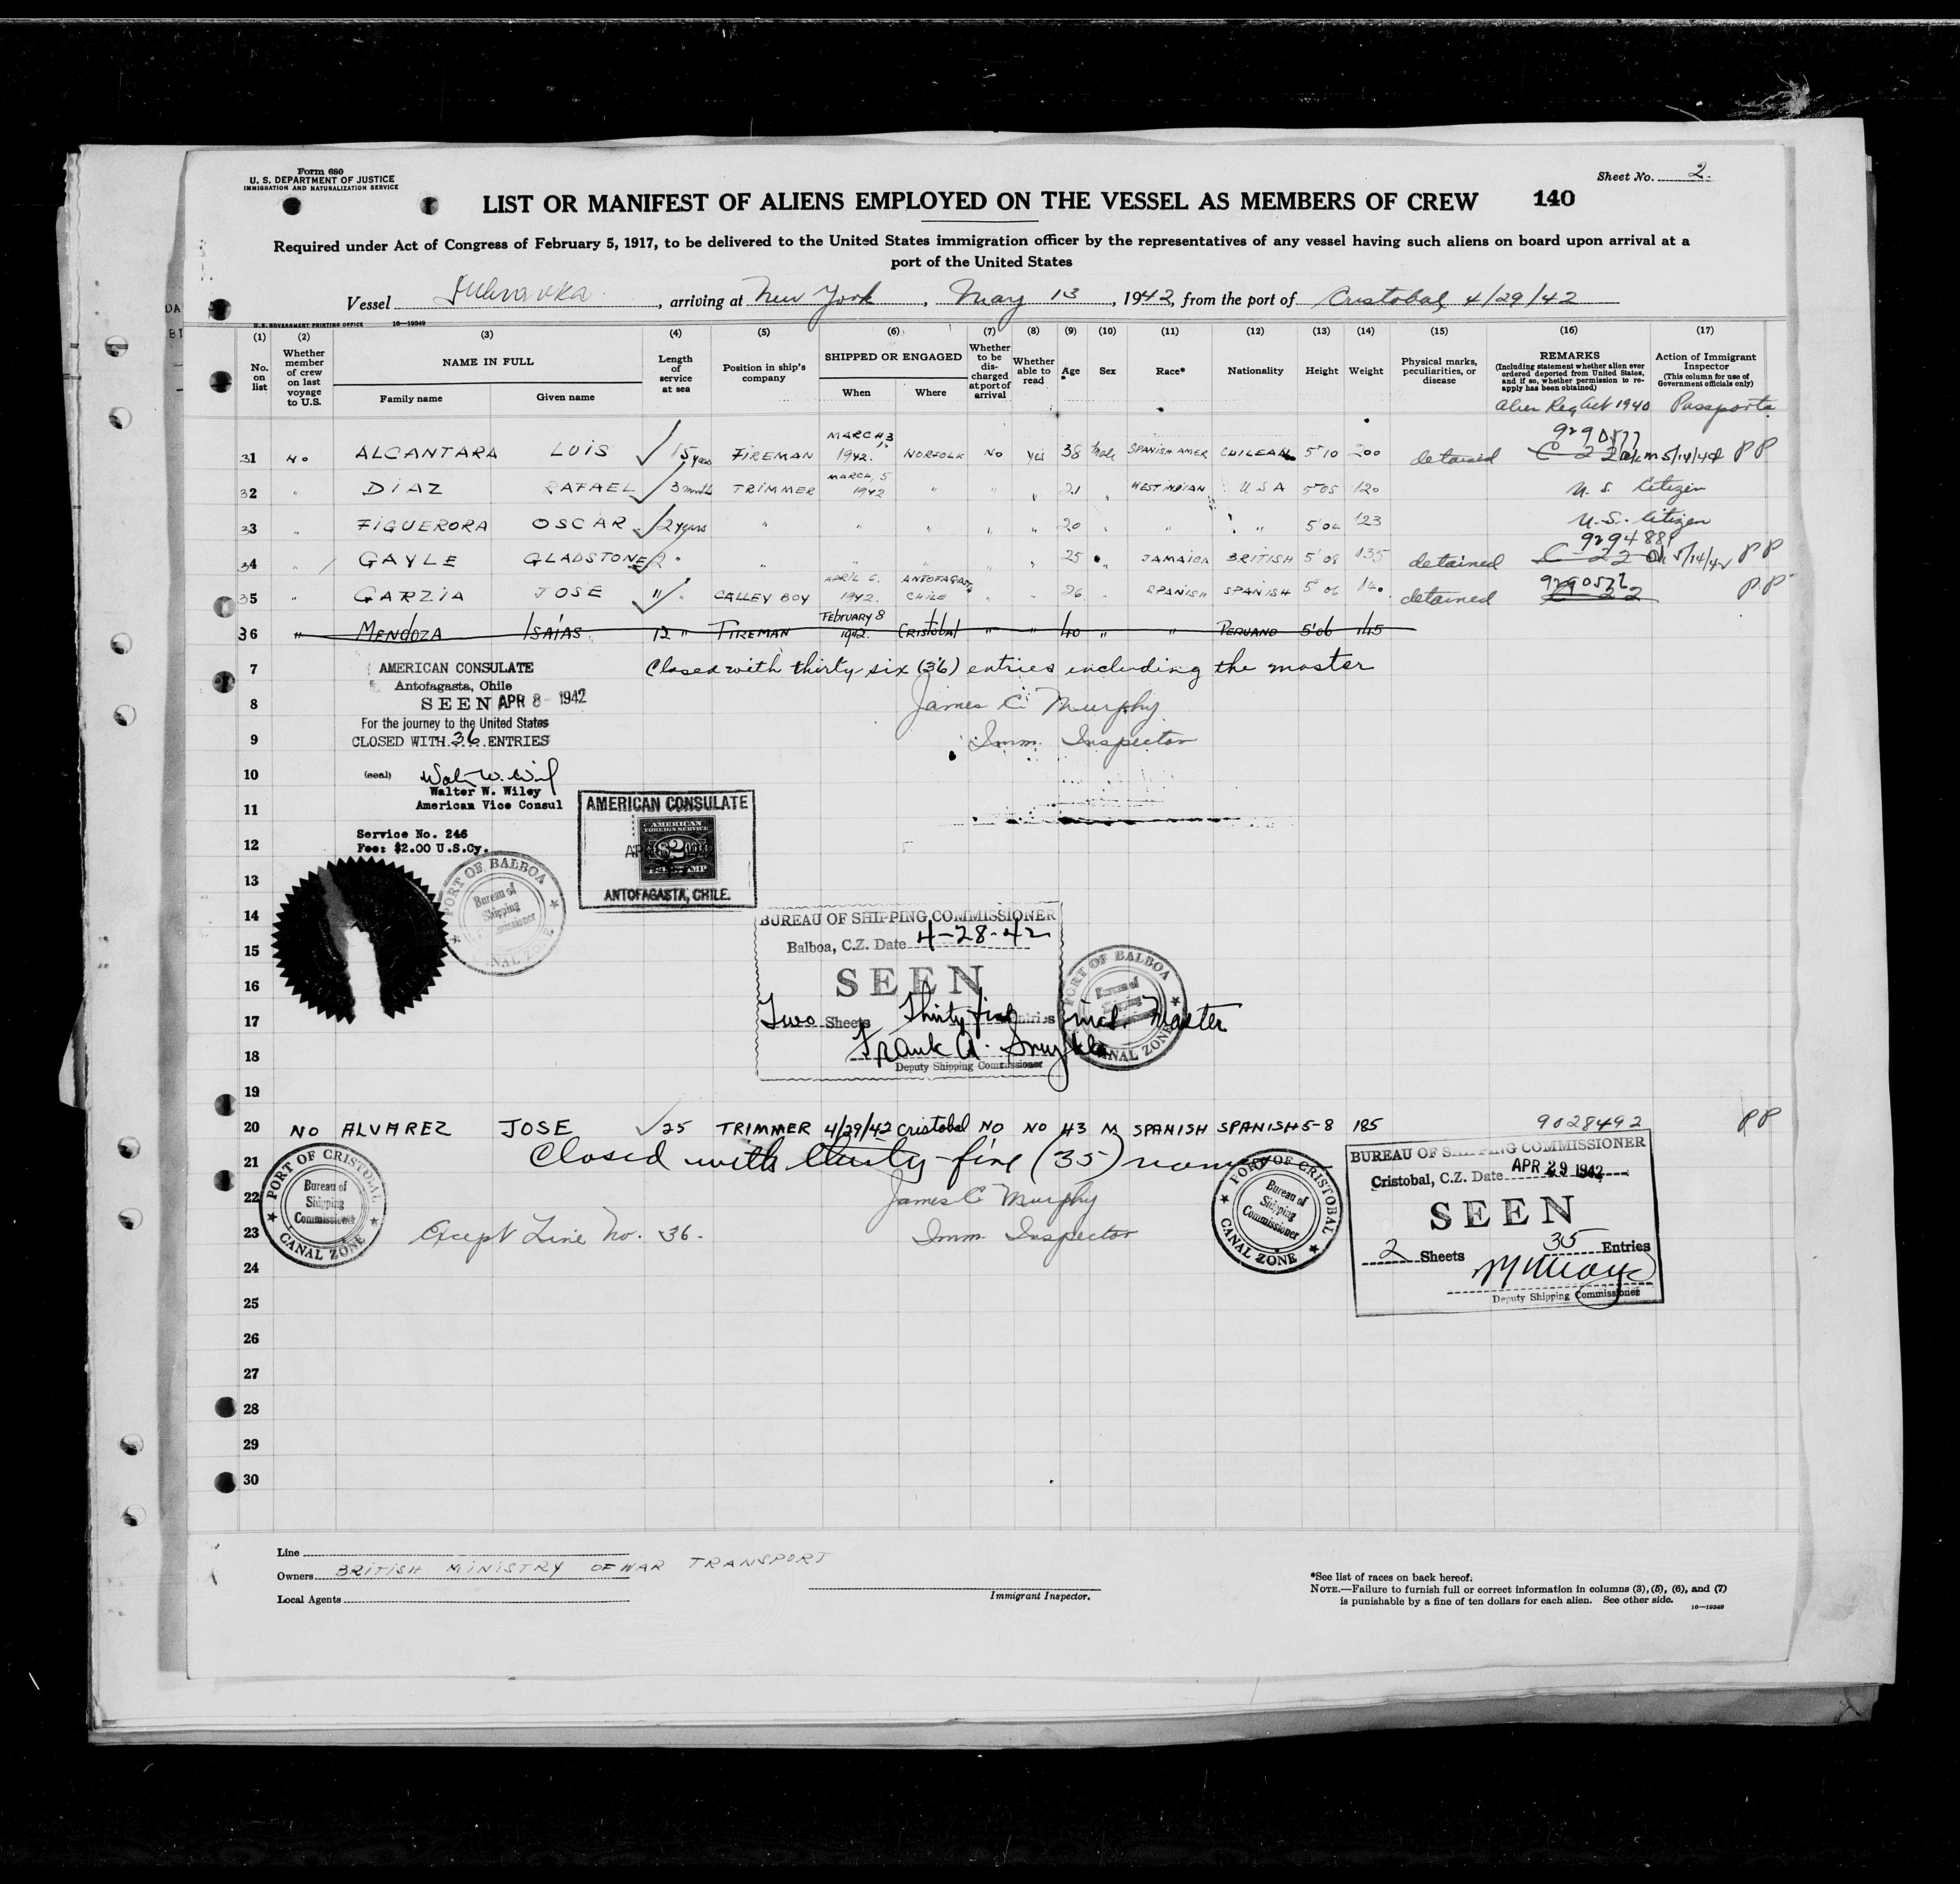 Form 680
U. S. DEPARTMENT OF JUSTICE
IMMIGRATION AND NATURALIZATION SERVICE
Sheet No. 2.
LIST OR MANIFEST OF ALIENS EMPLOYED ON THE VESSEL AS MEMBERS OF CREW 140
Required under Act of Congress of February 5, 1917, to be delivered to the United States immigration officer by the representatives of any vessel having such aliens on board upon arrival at a
port of the United States
Vessel , arriving at New York , May 13 , 1942, from the port of Cristobal, 4/29/42
U. S. GOVERNMENT PRINTING OFFICE 16—19349
(1) (2) (3) (4) (5) (6) (7) (8) (9) (10) (11) (12) (13) (14) (15) (16) (17)
No. on list
Whether member of crew on last voyage to U.S.
NAME IN FULL
Family name Given name
Length of service at sea
Position in ship's company
SHIPPED OR ENGAGED
When Where
Whether to be discharged at port of arrival
Whether able to read
Age Sex Race* Nationality Height Weight
Physical marks, peculiarities, or disease
REMARKS
(Including statement whether alien ever ordered deported from United States, and if so, whether permission to reapply has been obtained)
Action of Immigrant Inspector
(This column for use of Government officials only)
Alien Reg Act 1940 Passports
31 No ALCANTARA LUIS 15 years FIREMAN MARCH 3, 1942. NORFOLK NO yes 38 Male SPANISH AMER CHILEAN 5'10 200 detained C-22 5/14/42 PP
32 " DIAZ RAFAEL 3 month TRIMMER MARCH, 5 1942 " " " 21 " WEST INDIAN USA 5'05 120 U. S. Citizen
33 " FIGUERORA OSCAR 2 years " " " " " 20 " " " 5'04 123 U.S. Citizen
34 " GAYLE GLADSTONE 2 " " " " " " 25 " JAMAICA BRITISH 5'08 135 detained C-22 5/14/42 PP
35 " GARZIA JOSE 11 " GALLEY BOY APRIL 6. 1942. ANTOFAGASTA CHILE " " 26 " SPANISH SPANISH 5'06 140. detained PP
36 " MENDOZA ISAÍAS. 12 " FIREMAN FEBRUARY 8 1942. CRISTOBAL " " 40 " " PERUANO 5'06 145
7 Closed with thirty-six (36) entries including the master
AMERICAN CONSULATE
Antofagasta, Chile
8 SEEN APR 8 - 1942
James C. Murphy
For the journey to the United States
9 CLOSED WITH 36 ENTRIES
Imm. Inspector
10 (seal)
Walter W. Wiley
American Vice Consul
11
AMERICAN CONSULATE
AMERICAN
FOREIGN SERVICE
$2
FEE STAMP
ANTOFAGASTA, CHILE.
Service No. 246
12 Fee: $2.00 U.S.Cy.
13
PORT OF BALBOA
Bureau of
Shipping
Commissioner
CANAL ZONE
14 BUREAU OF SHIPPING COMMISSIONER
15 Balboa, C.Z. Date 4-28-42
16 SEEN
17 Two Sheets Thirty five Entries incl. Master
18 Frank A.
Deputy Shipping Commissioner
PORT OF BALBOA
Bureau of
Shipping
CANAL ZONE
19
20 NO ALVAREZ JOSE 25 TRIMMER 4/29/42 Cristobal NO NO 43 M SPANISH SPANISH 5-8 185 9028492 PP
21 Closed with thirty-five (35) names
22 James C. Murphy
23 Except Line No. 36. Imm. Inspector
PORT OF CRISTOBAL
Bureau of
Shipping
Commissioner
CANAL ZONE
PORT OF CRISTOBAL
Bureau of
Shipping
Commissioner
CANAL ZONE
BUREAU OF SHIPPING COMMISSIONER
Cristobal, C.Z. Date APR 29 1942
SEEN
2 Sheets 35 Entries
Deputy Shipping Commissioner
24
25
26
27
28
29
30
Line
Owners BRITISH MINISTRY OF WAR TRANSPORT
Local Agents
Immigrant Inspector.
*See list of races on back hereof.
NOTE.—Failure to furnish full or correct information in columns (3), (5), (6), and (7)
is punishable by a fine of ten dollars for each alien. See other side.
16—19349